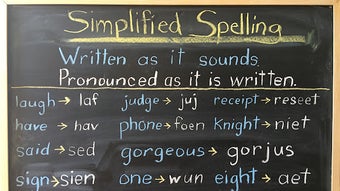 Simplified Spelling
Written as it sounds.
Pronounced as it is written.
laugh → laf judge → juj receipt → reseet
have → hav phone → foen knight → niet
said → sed gorgeous → gorjus
sign → sien one → wun eight → aet